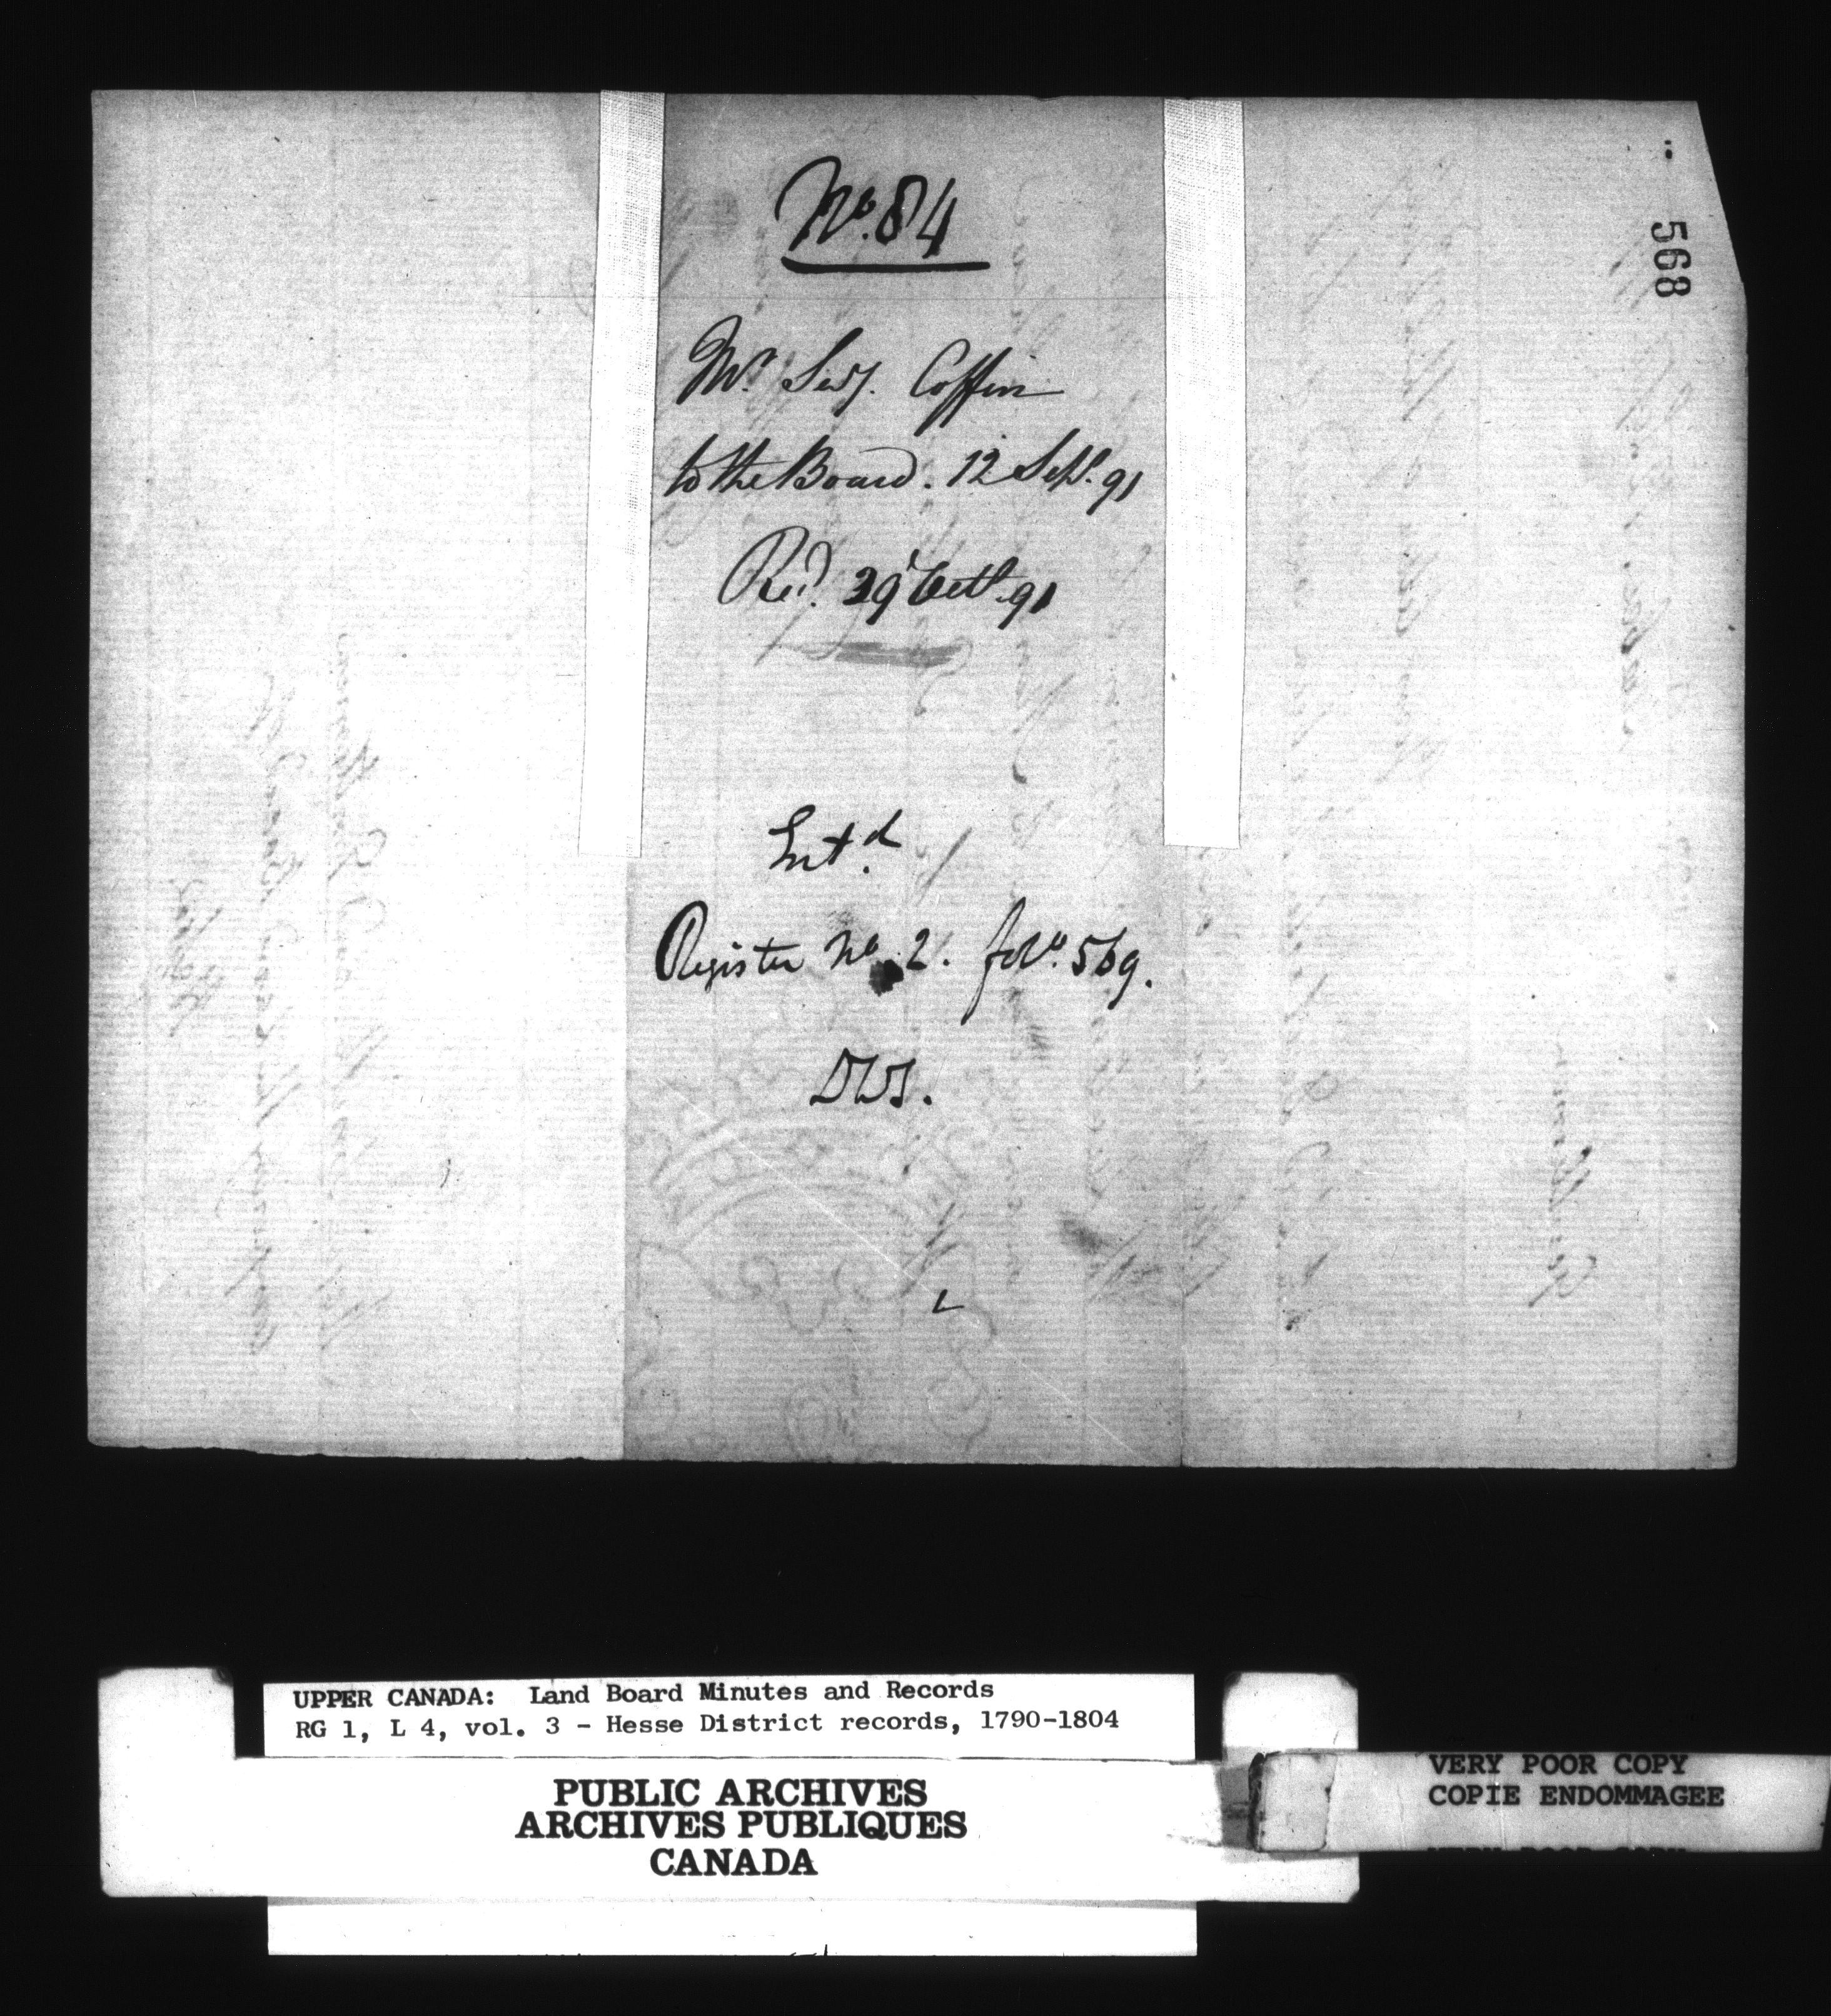 568
No. 84
Mr. Secy. Coffin
to the Board. 12 Sept. 91
Recd. 29 Octr. 91
Entd.
Register No. 2. folo. 569.
DWS.
UPPER CANADA: Land Board Minutes and Records
RG 1, L 4, vol. 3 - Hesse District records, 1790-1804
PUBLIC ARCHIVES
ARCHIVES PUBLIQUES
CANADA
VERY POOR COPY
COPIE ENDOMMAGEE